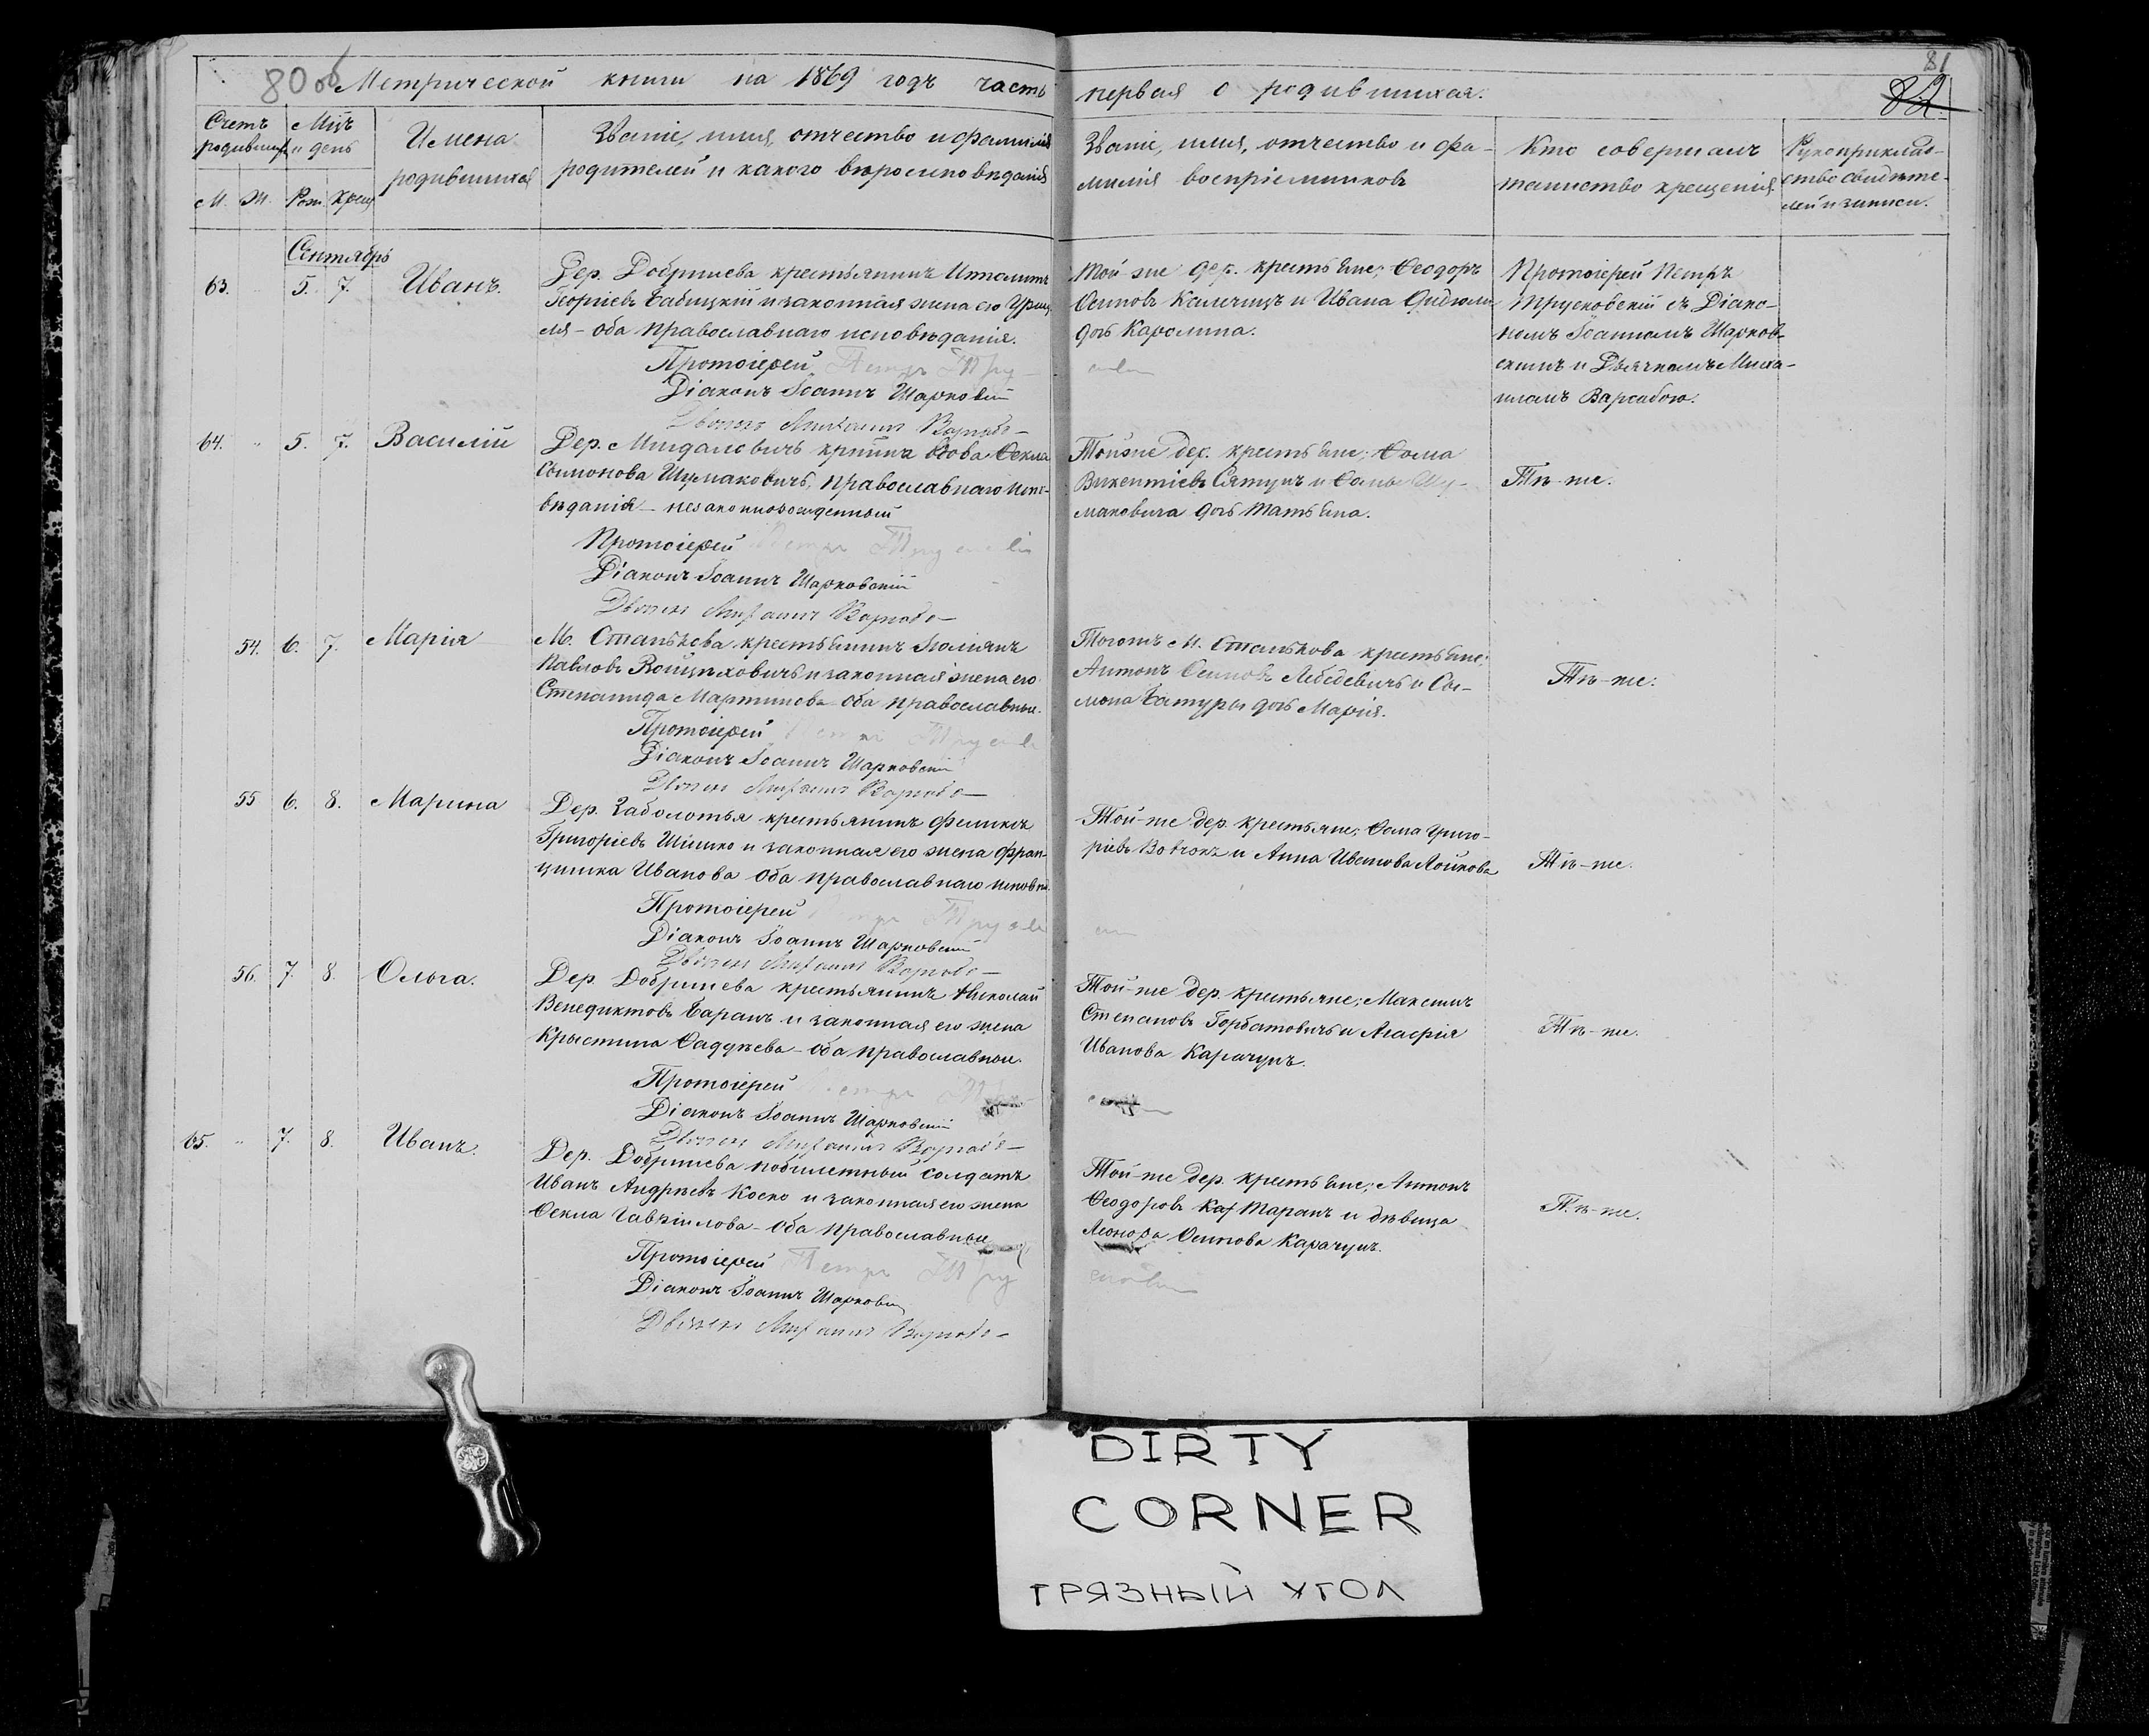 80 об
Метрической книги на 1869 годъ часть первая о родившихся.
81
82.
Счетъ родившихся
Мцъ и день
Имена родившихся
Званіе, имя, отчество и фамилія
родителей и какого вѣроисповѣданія
Званіе, имя, отчество и фа-
милія воспріемниковъ
Кто совершалъ
таинство крещенія.
Рукоприклад-
ство свидѣте-
лей и записи.
М. Ж. Рож. Крещ
Сентябрь
63. 5. 7. Иванъ.
Дер. Добринева крестьянинъ
Георгіевъ Бабицкій и законная жена его
оба православнаго исповѣданія.
Протоіерей Петръ Тру
Діаконъ Іоаннъ Шарковскій
Михаилъ
Той же дер. крестьяне; Ѳеодоръ
Осиповъ и Ивана
дочь Каролина.
Протоіерей Петръ
Трусковскій съ Діако-
номъ Іоанномъ Шарков-
скимъ и Дьячкомъ Миха-
иломъ Варсабою.
64. 5. 7. Василій
Дер. вдова Ѳекла
Сымонова Шумаковичъ, православнаго испо-
вѣданія - незаконнорожденный
Протоіерей Петръ
Діаконъ Іоаннъ Шарковскій
Михаилъ
Тойже дер. крестьяне; Ѳома
Викентіевъ и Шу-
маковича дочь Татьяна.
Тѣ-же.
54. 6. 7. Марія
М. Станькова крестьянинъ
Павловъ Войцѣховичъ и законная жена его
Степанида Мартинова оба православные.
Протоіерей Петръ
Діаконъ Іоаннъ Шарковскій
Михаилъ
Тогожъ М. Станькова крестьяне;
Антонъ Осиповъ Лебедевичъ и Сы-
мона дочь Марія.
Тѣ-же.
55 6. 8. Марина
Дер. Заболотья крестьянинъ Феликсъ
Григоріевъ Шишко и законная его жена Фран-
цишка Иванова оба православнаго исповѣд.
Протоіерей Петръ
Діаконъ Іоаннъ Шарковскій
Михаилъ
Той-же дер. крестьяне; Ѳома Григо-
ріевъ и Анна Иванова
Тѣ-же.
56. 7. 8. Ольга.
Дер. Добринева крестьянинъ Николай
Венедиктовъ Баранъ и законная его жена
Крыстина Ѳаддѣева - оба православные.
Протоіерей Петръ
Діаконъ Іоаннъ Шарковскій
Михаилъ
Той-же дер. крестьяне; Максимъ
Степановъ Горбатовичъ и Агафія
Иванова Карачунъ.
Тѣ-же.
65. 7. 8. Иванъ.
Дер. Добринева побилетный солдатъ
Иванъ Андреевъ Коско и законная его жена
Ѳекла Гавріилова - оба православные
Протоіерей Петръ Тру
Діаконъ Іоаннъ Шарковскій
Михаилъ
Той-же дер. крестьяне; Антонъ
Ѳеодоровъ Таранъ и дѣвица
Леонора Осипова Карачунъ.
Тѣ-же.
DIRTY
CORNER
ГРЯЗНЫЙ УГОЛ